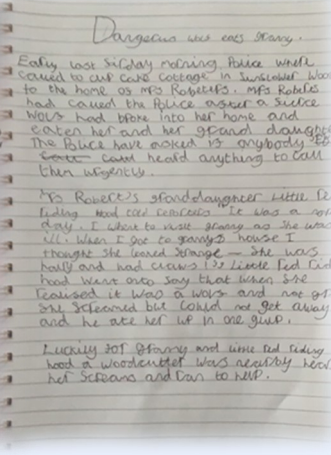 Dangerous wolf eats granny.
Early last Sunday morning Police where
called to cup cake cottage in Sunflower Woo
to the home of Mrs Roberts. Mrs Roberts
had called the Police after a fierce
wolf had broke into her home and
eaten her and her grand daught
The Police have asked if anybody
could heard anything to call
them urgently.
Mrs Robert's granddaughter Little Re
Riding Hood told reporters "It was a
day. I whent to visit granny as she was
ill. When I got to granny's house I
thought she looked strange - She was
hairy and had claws!" Little Red Rid
hood went onto say that when she
realised it was a wolf and not gr
She screamed but could not get away
and he ate her up in one gulp.
Luckily for granny and Little red Riding
hood a woodcutter was nearby hear
her Screams and ran to help.